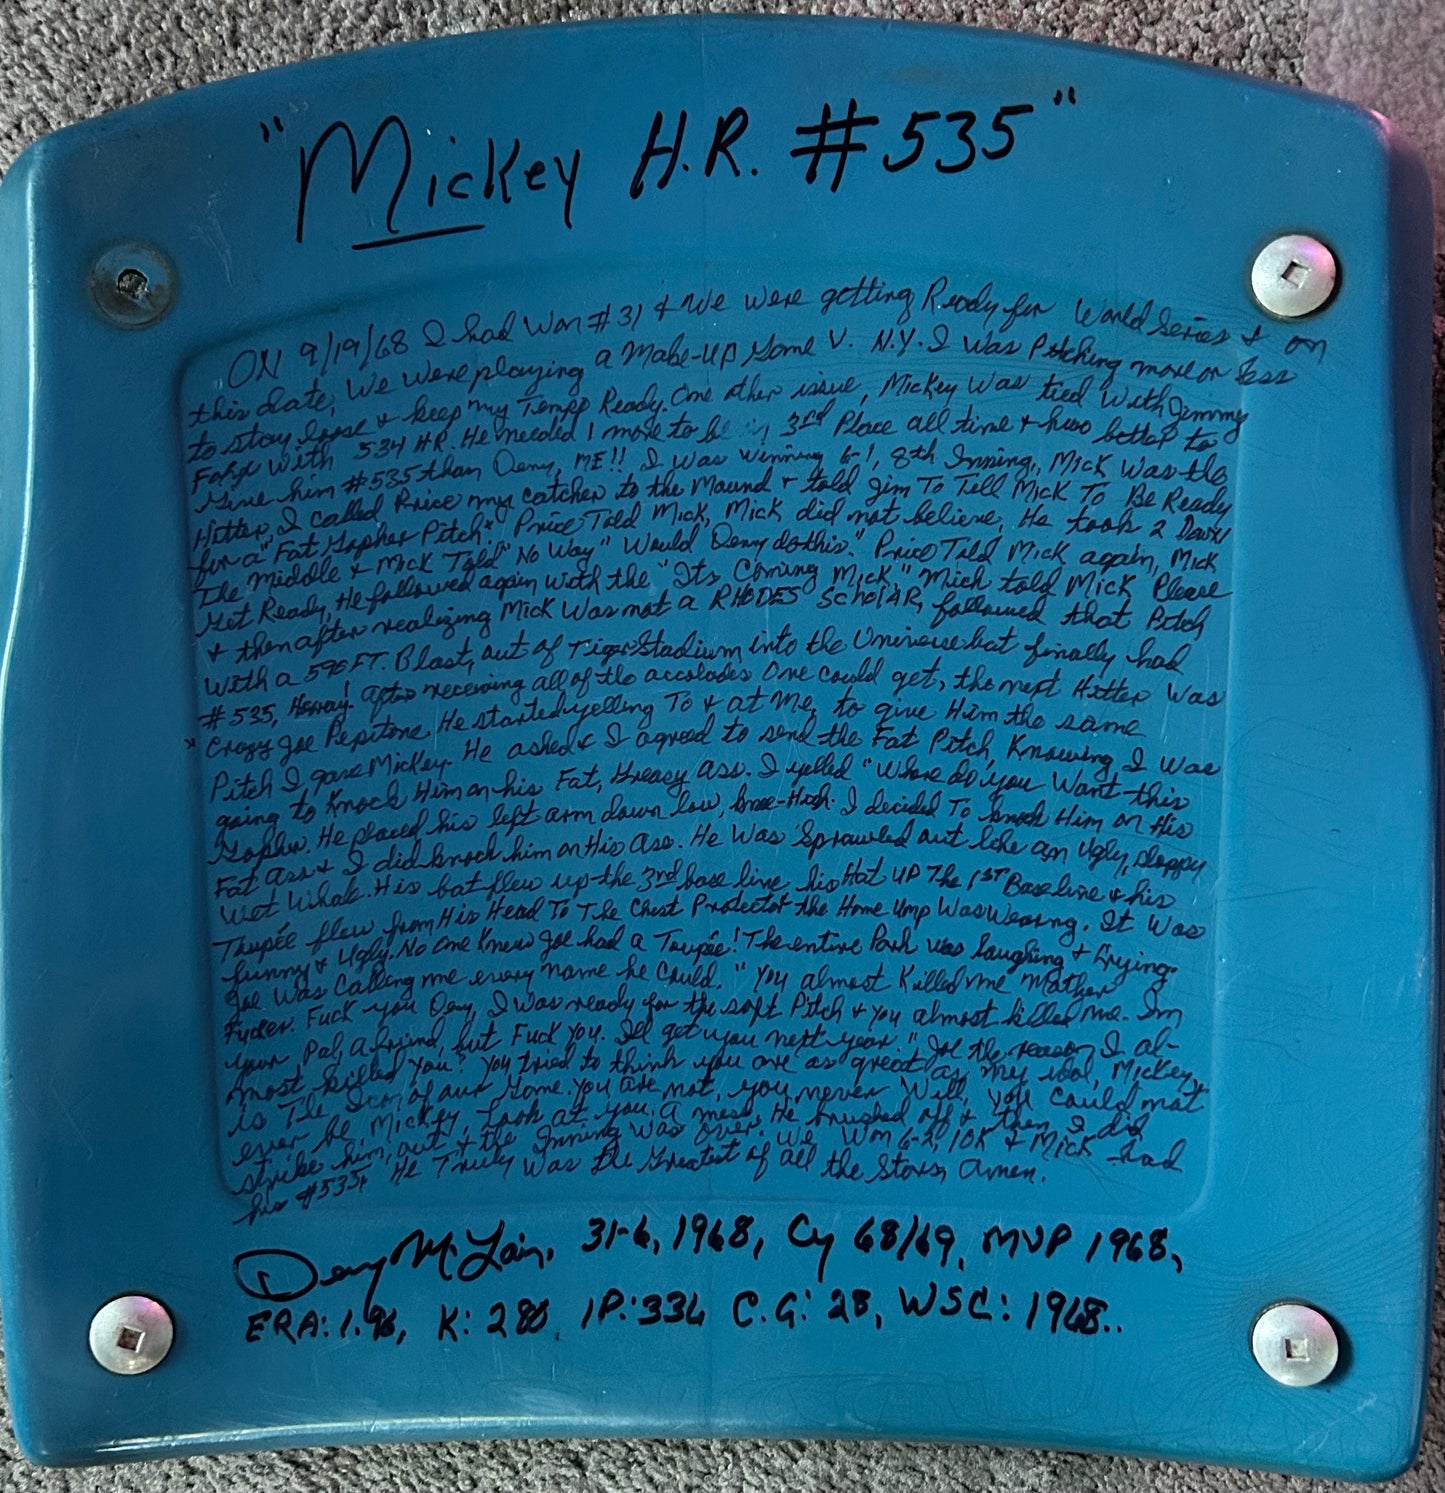 "Mickey H.R. #535"
ON 9/19/68 I had Won #31 & We were getting Ready for World Series & on
this date, We were playing a Make-up Game V. N.Y. I was Pitching more or less
to stay loose & keep my Tempo Ready. One other issue, Mickey was tied with Jimmy
Foxx with 534 HR. He needed 1 more to be in 3rd Place all time & who better to
Give him #535 than Deny, ME!! I was winning 6-1, 8th Inning, Mick was the
Hitter, I called Price my catcher to the Mound & told Jim To Tell Mick To Be Ready
for a "Fat Gopher Pitch" Price Told Mick, Mick did not believe, He took 2 Down
The Middle & Mick Told "No Way" Would Deny do this." Price Told Mick again, Mick
Get Ready, He followed again with the "Its Coming Mick," Mick told Mick Please
& then after realizing Mick was not a RHODES SCHOLAR, followed that Pitch
with a 590 FT. Blast, out of Tiger Stadium into the Universe but finally had
#535, after receiving all of the accolades One could get, the next Hitter was
Crazy Joe Pepitone. He started yelling To & at Me, to give Him the same
Pitch I gave Mickey. He asked & I agreed to send the Fat Pitch, Knowing I was
going to Knock Him on his Fat, Greasy ass. I yelled "Where do you Want this
Gopher. He placed his left arm down low, knee-High. I decided To knock Him on His
Fat ass & I did knock him on His ass. He was Sprawled out like an Ugly, sloppy
Wet Whale. His bat flew up the 3rd base line his Hat UP The 1ST Base line & his
Toupée flew from His Head To The Chest Protector the Home Ump Was Wearing. It Was
funny & Ugly. No one Knew Joe had a Toupée! The entire Park was laughing & Crying.
Joe was Calling me every name he could. "You almost Killed me Mother
Fucker. Fuck you Deny, I was ready for the soft Pitch & you almost killed me. Im
your Pal, a friend, but Fuck you. Ill get you next year" Joe the reason I al-
most killed You? You tried to think you are as great as my idol, Mickey,
is The Icon of our Game. You are not, you never Will, you could not
ever be, Mickey, Look at you. a mess. He brushed off & then I did
strike him out & the Inning was over. We Won 6-2, 10K & Mick had
his #535, He Truly Was the Greatest of all the Stars, Amen.
Deny McLain, 31-6, 1968, Cy 68/69, MVP 1968,
ERA: 1.96, K: 280, IP: 336 C.G: 28, WSC: 1968..